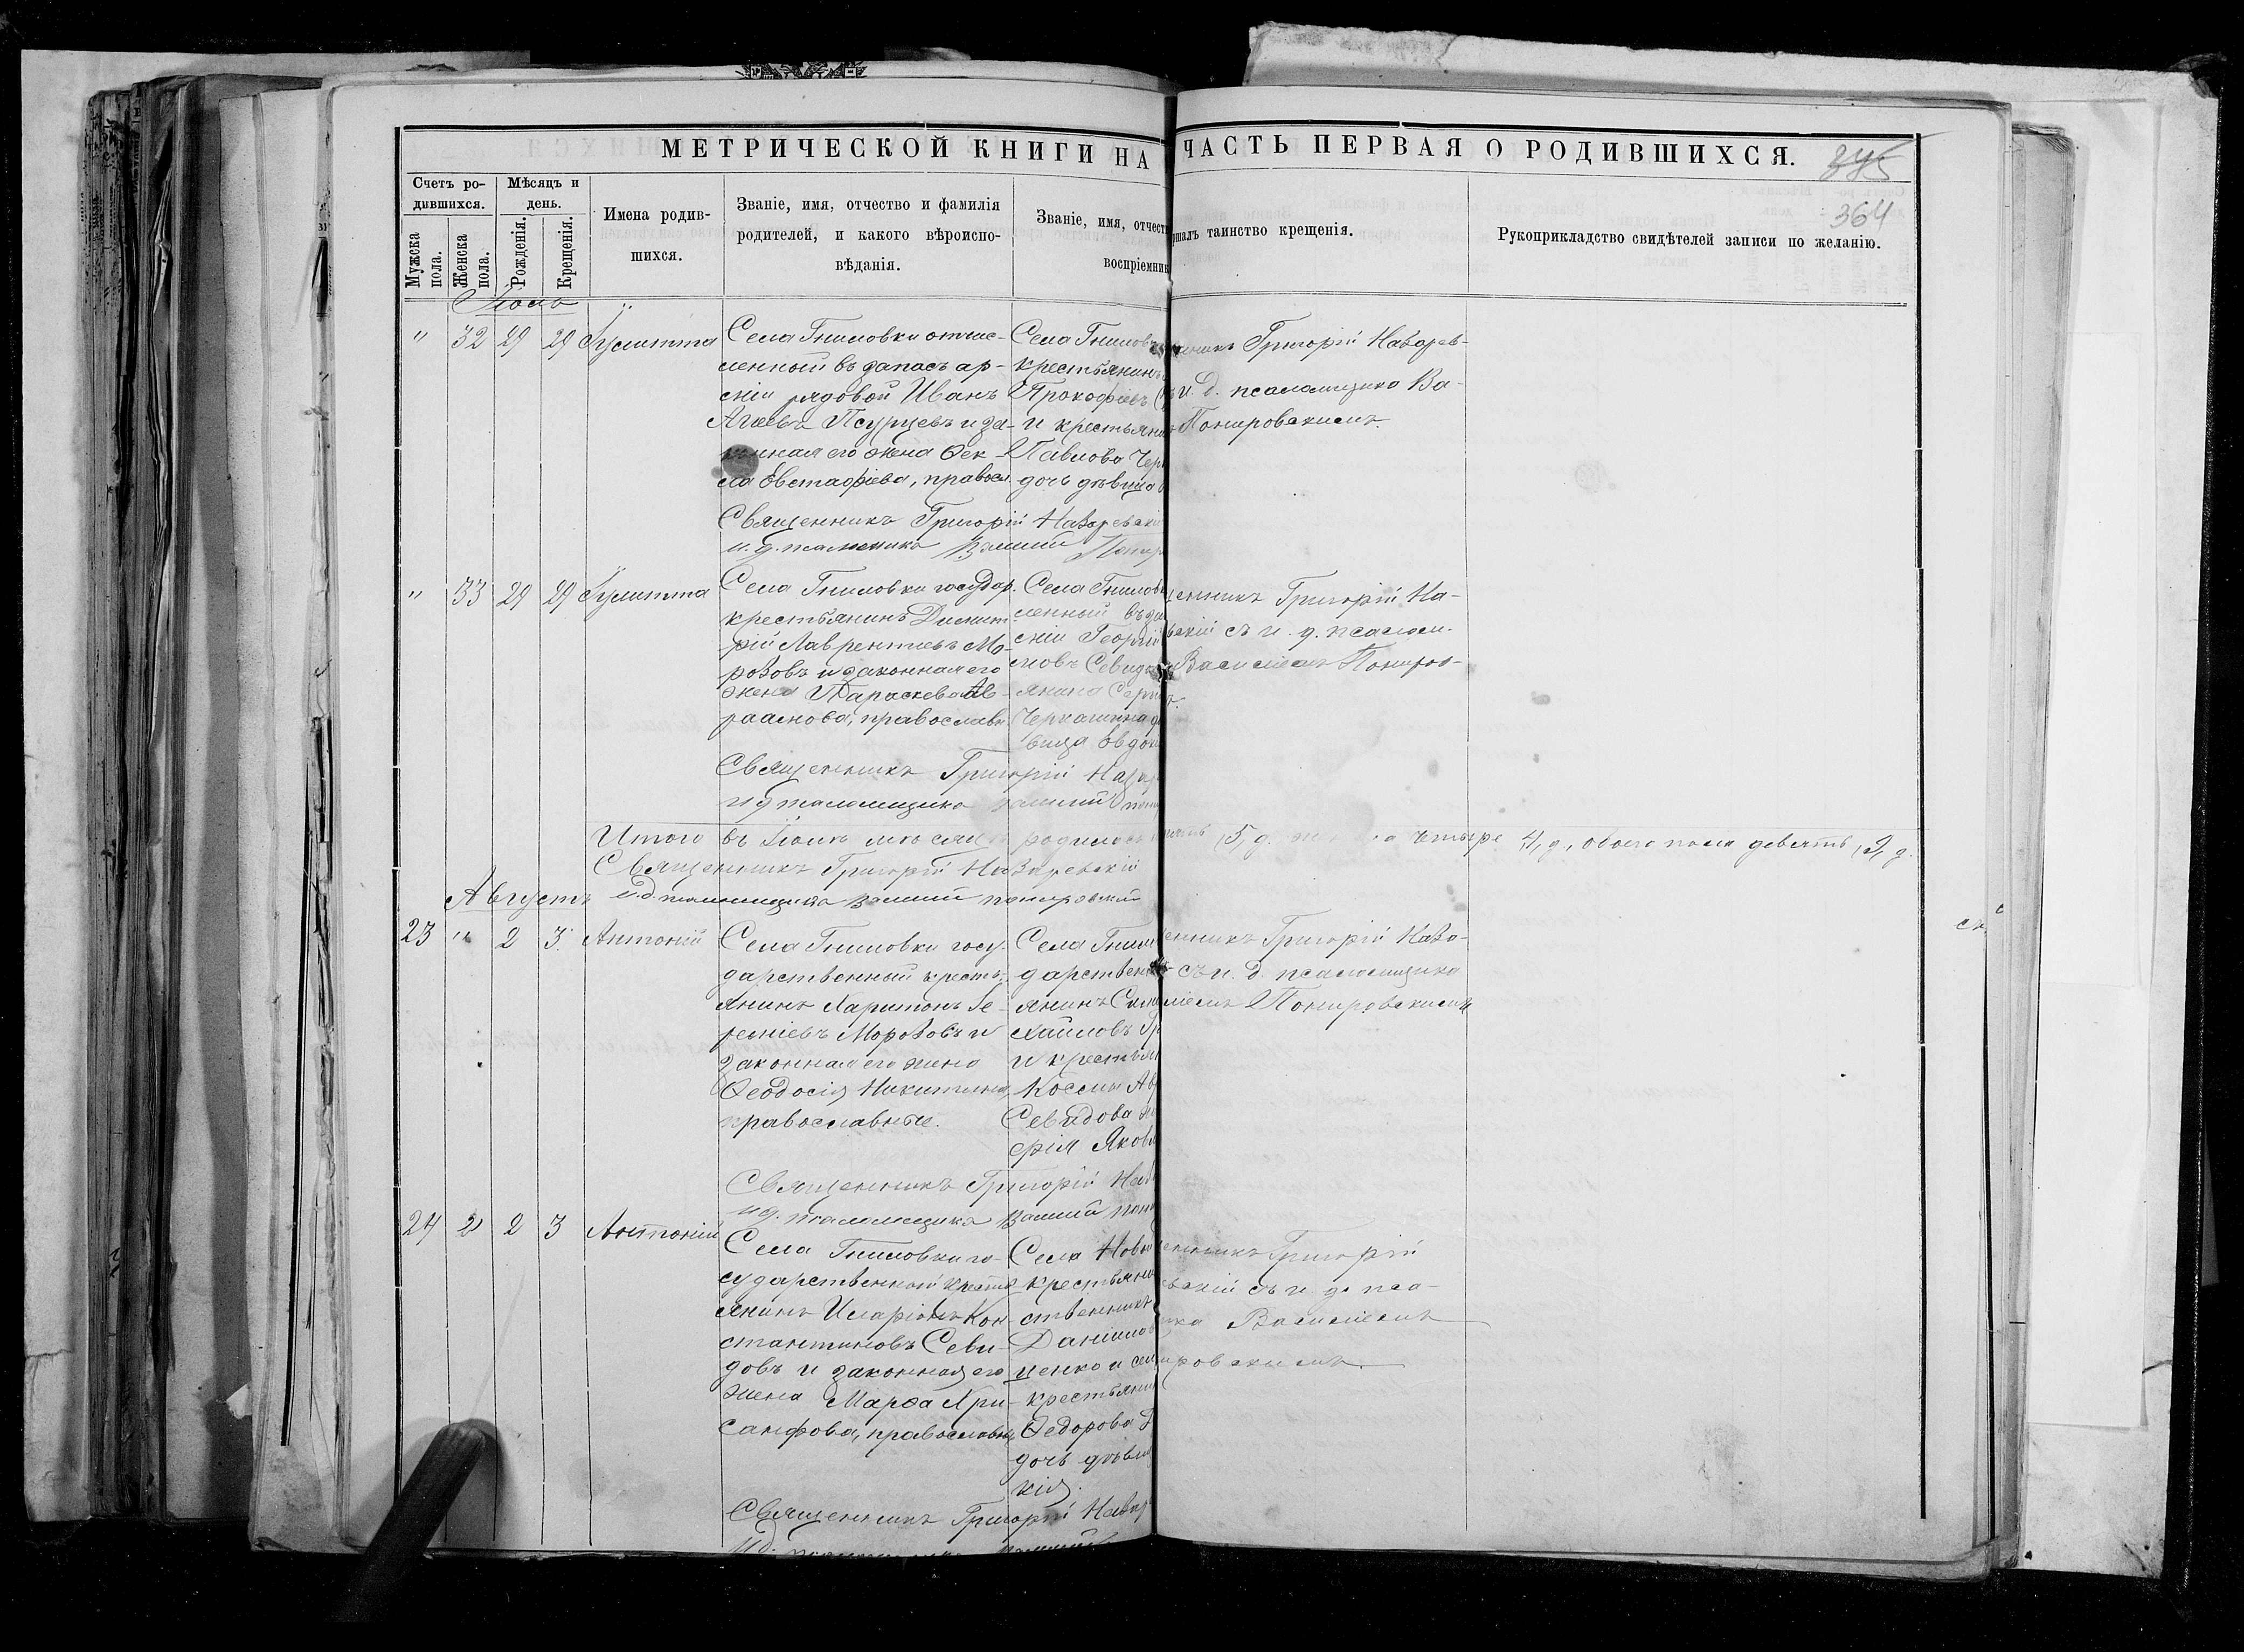 МЕТРИЧЕСКОЙ КНИГИ НА ЧАСТЬ ПЕРВАЯ О РОДИВШИХСЯ.
375
364
Счетъ ро-
дившихся.
Мужска пола.
Женска пола.
Мѣсяцъ и
день.
Рожденія.
Крещенія.
Имена родив-
шихся.
Званіе, имя, отчество и фамилія
родителей, и какого вѣроиспо-
вѣданія.
Званіе, имя, отчест
воспріемник
ршалъ таинство крещенія.
Рукоприкладство свидѣтелей записи по желанію.
"
32
29
29
Іулитта
Села Гниловки отчис-
ленный въ запасъ ар-
міи рядовой Иванъ
Агѣевъ Псурцевъ и за-
конная его жена Ѳек-
ла Евстафіева, правосл.
Села Гнилов
крестьянинъ
Прокофіевъ
и крестьяни
Павлова Чер
дочь дѣвица
Григорій Назарев-
и. д. псаломщика Ва-
Понировскимъ.
Священникъ Григорій Назаревскі
и. д. псаломщика Василій Понир
"
33
29
29
Іулитта
Села Гниловки государ.
крестьянинъ Димит-
рій Лаврентіевъ Мо-
розовъ и законная его
жена Параскева Ав-
раамова, православн.
Села Гнилов
ленный въ за
міи Георгій
мовъ Севидо
янина Серг
Черкашина д
вица Евдок
щенникъ Григорій На-
вскій съ и. д. псалом.
Василіемъ Пониров-
Священникъ Григорій Назар
и д псаломщика Василій Пони
Итого въ Іюлѣ мѣсяцѣ родилось 5, д. четыре 4, д., обоего пола девять, 9, д.
Священникъ Григорій Назаревскій
и. д. псаломщика Василій Понировскій
Августъ
23
"
2
3
Антоній
Села Гниловки госу-
дарственный кресть-
янинъ Харитонъ Іе-
реміевъ Морозовъ и
законная его жена
Ѳеодосія Никитина,
православные.
Села Гнил
дарствен
янинъ Сим
хайловъ
и крестья
Космы Ав
Севидова
ерія Яков
енникъ Григорій Наза-
съ и. д. псаломщика
ліемъ Понировскимъ
Священникъ Григорій Наз
и д. псаломщика Василій Пони
24
"
2
3
Антоній
Села Гниловки го-
сударственный кресть-
янинъ Иларіонъ Кон-
стантиновъ Севи-
довъ и законная его
жена Марѳа Хри-
санфова, православн.
Села Нов
крестьяни
ственникъ
Даніилов
ценко и сел
крестьяни
Ѳедорова
дочь дѣви
кія.
енникъ Григорій
вскій съ и. д. пса-
ика Василіемъ
ировскимъ.
Священникъ Григорій Назар